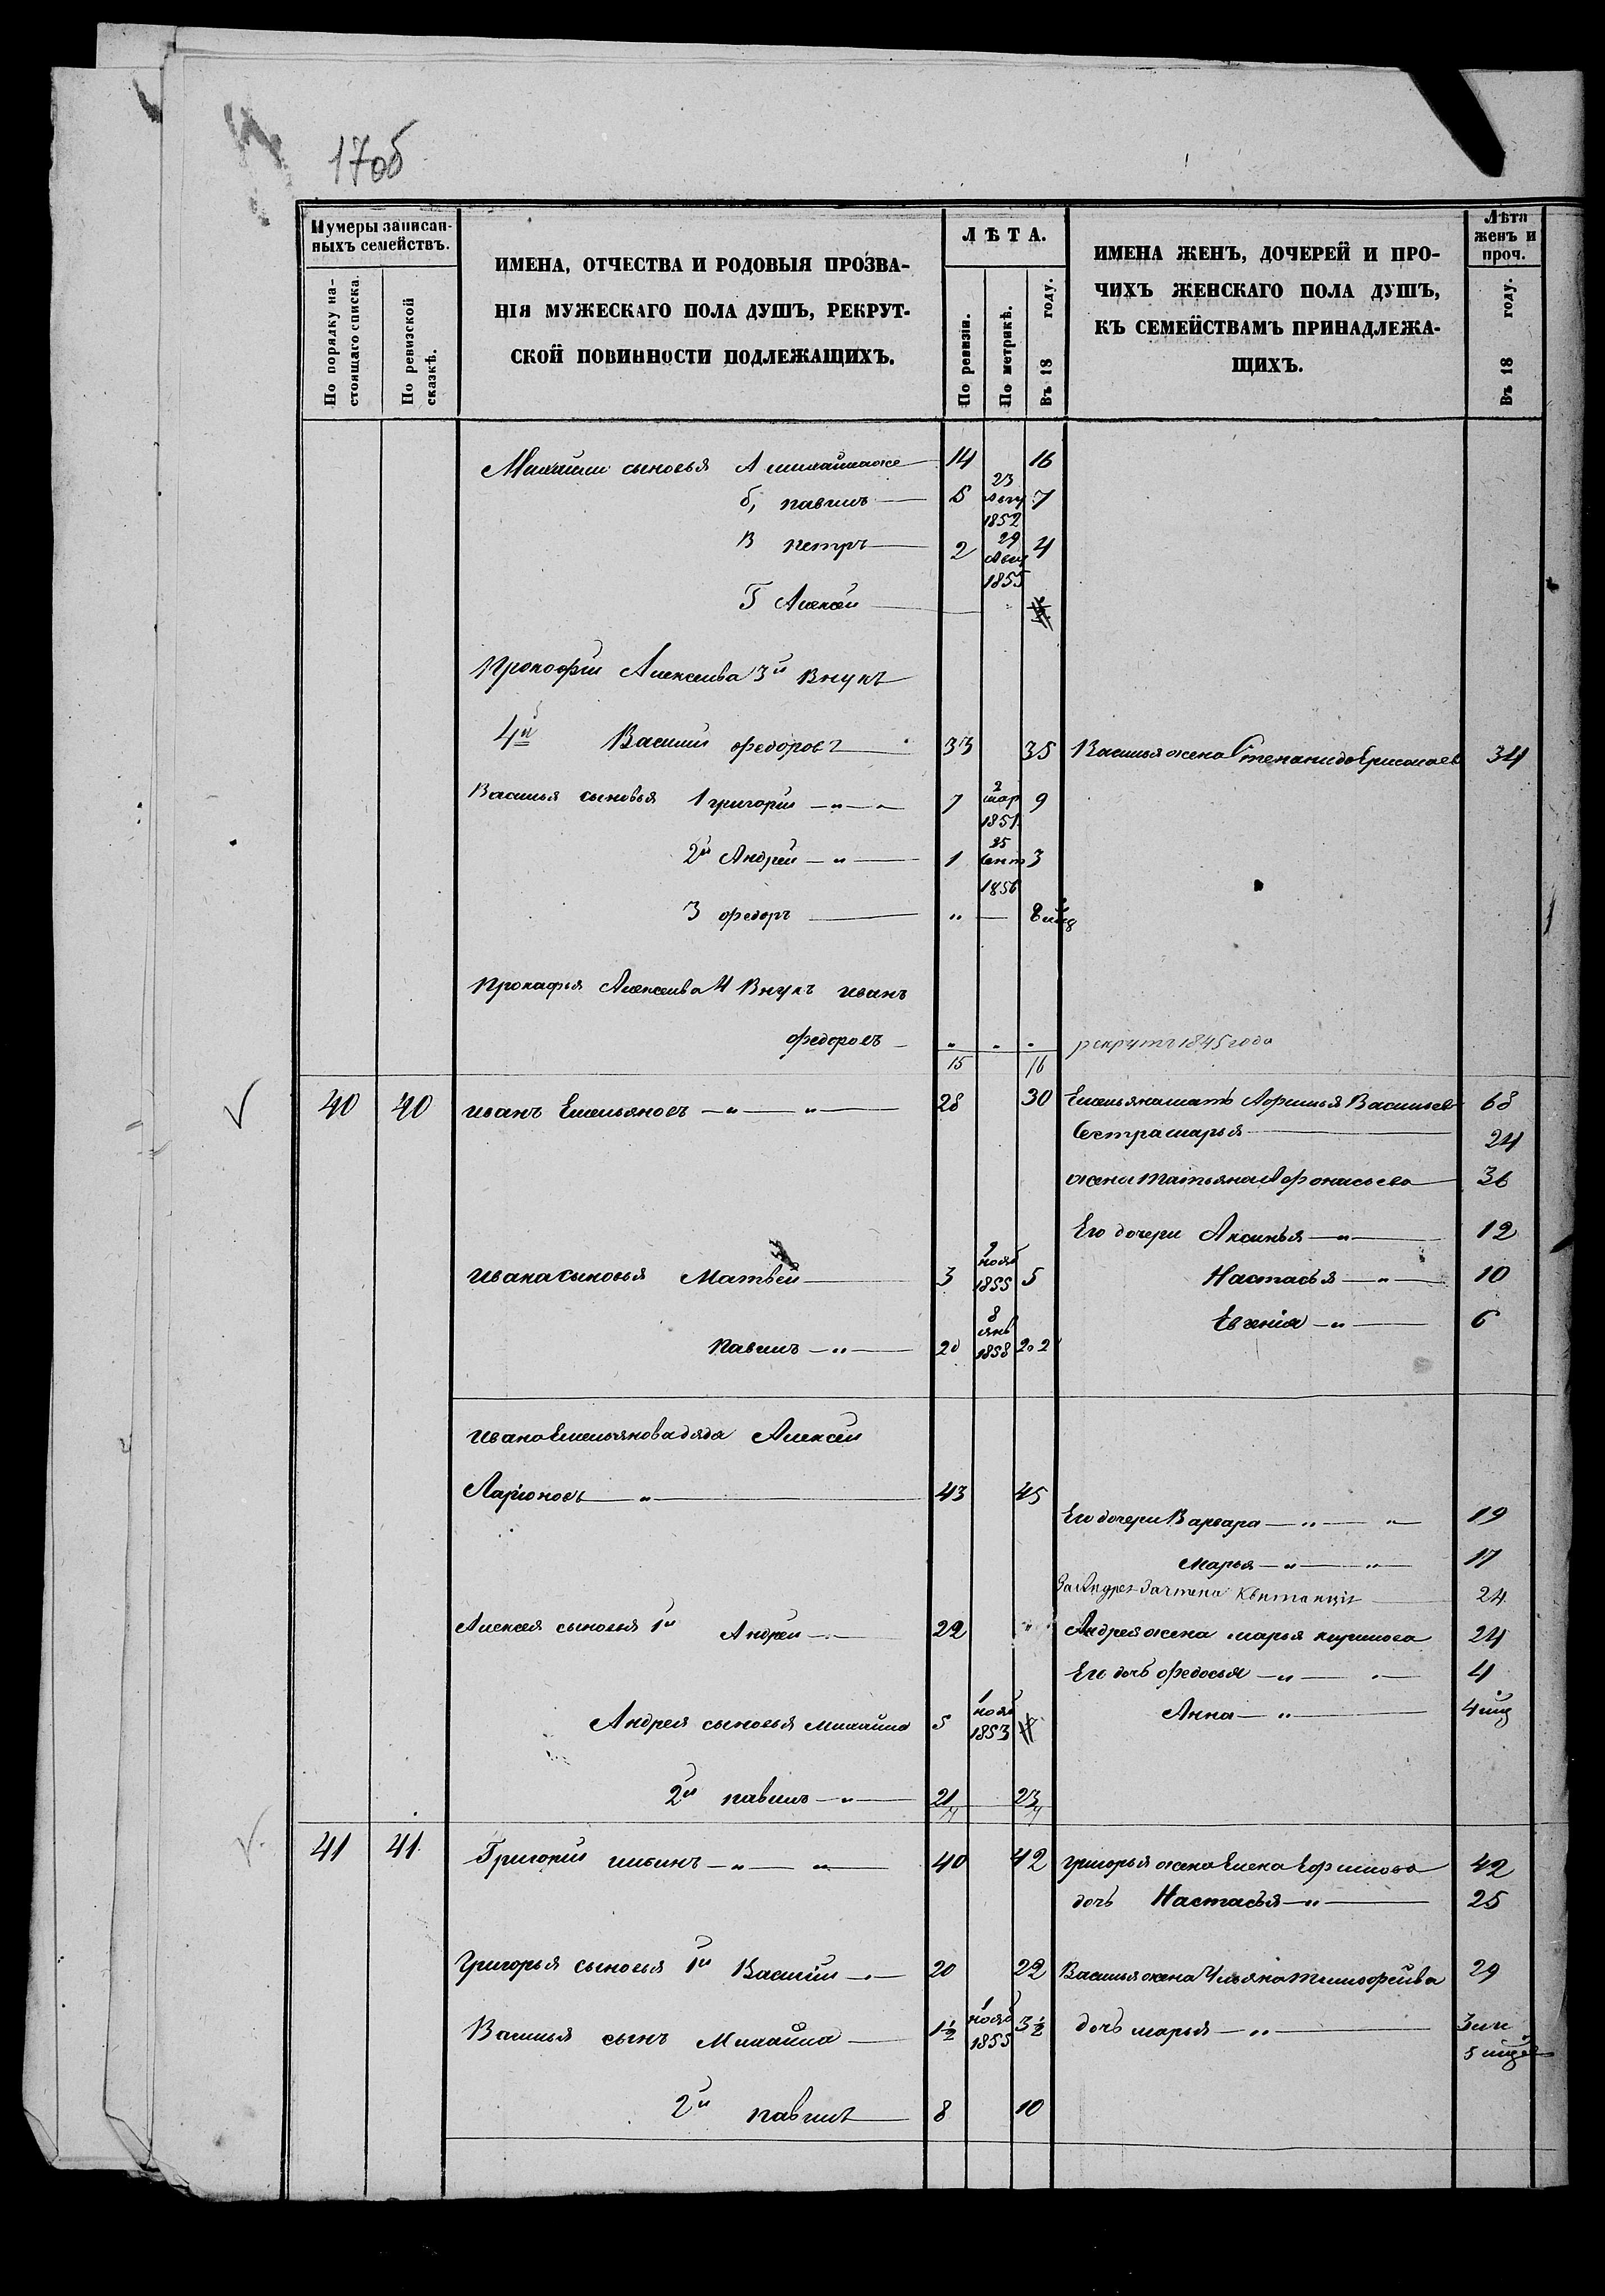 17об
Нумеры записан-
ныхъ семействъ.
По порядку на-
стоящаго списка.
По ревизской
сказкѣ.
ИМЕНА, ОТЧЕСТВА И РОДОВЫЯ ПРОЗВА-
НІЯ МУЖЕСКАГО ПОЛА ДУШЪ, РЕКРУТ-
СКОЙ ПОВИННОСТИ ПОДЛЕЖАЩИХЪ.
ЛѢТА.
По ревизіи.
По метрикѣ.
Въ 18 году.
ИМЕНА ЖЕНЪ, ДОЧЕРЕЙ И ПРО-
ЧИХЪ ЖЕНСКАГО ПОЛА ДУШЪ,
КЪ СЕМЕЙСТВАМЪ ПРИНАДЛЕЖА-
ЩИХЪ.
Лѣта
женъ и
проч.
Въ 18 году.
сыновья А 14 16
б, павилъ 5 23 1852 7
В петръ 2 29 1855 4
Г Алексѣй
Прокофiи Алексеива 3й Внукъ
4й Василии федоровъ 33 35 Василья жена 34
Василья сыновья 1 григорiи 7 2 мар 1851 9
2й Андреи 1 25 Сент 1856 3
3 федоръ
Прокафья Алексеива 4 Внукъ иванъ
федоровъ рекрутъ 1845 года
15 16
40 40 иванъ Емельяновъ 28 30 Васильев 68
Сестра марья 24
жена татьяна Афонасьева 36
Его дочери Аксинья 12
ивана сыновья Матвей 3 9 нояб 1855 5 Настасья 10
Евгенiя 6
павилъ 8 янв 1858
ивана Емельянова дядя Алексеи
Ларiоновъ 43 45
Его дочери Варвара 19
Марья 17
квитанцiя 24
Алексея сыновья 1й Андреи 22 Андрея жена марья 24
Его дочь федосья 4
Андрея сыновья михаила 5 1 нояб 1853 Анна 4 мц
2й павилъ 21 23
41 41 Григорiи 40 42 григорья жена Елена Ефимова 42
дочь Настасья 25
Григорья сыновья 1й Василiи 20 22 Василья жена Ульяна тимофеива 29
Василья сынъ Михаила 1½ 1 нояб 1855 3½ дочь марья
2й павилъ 8 10